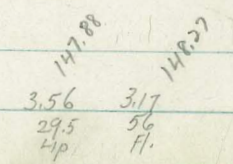 147.88 148.27
3.56 3.17
29.5 56
Lip Fl.